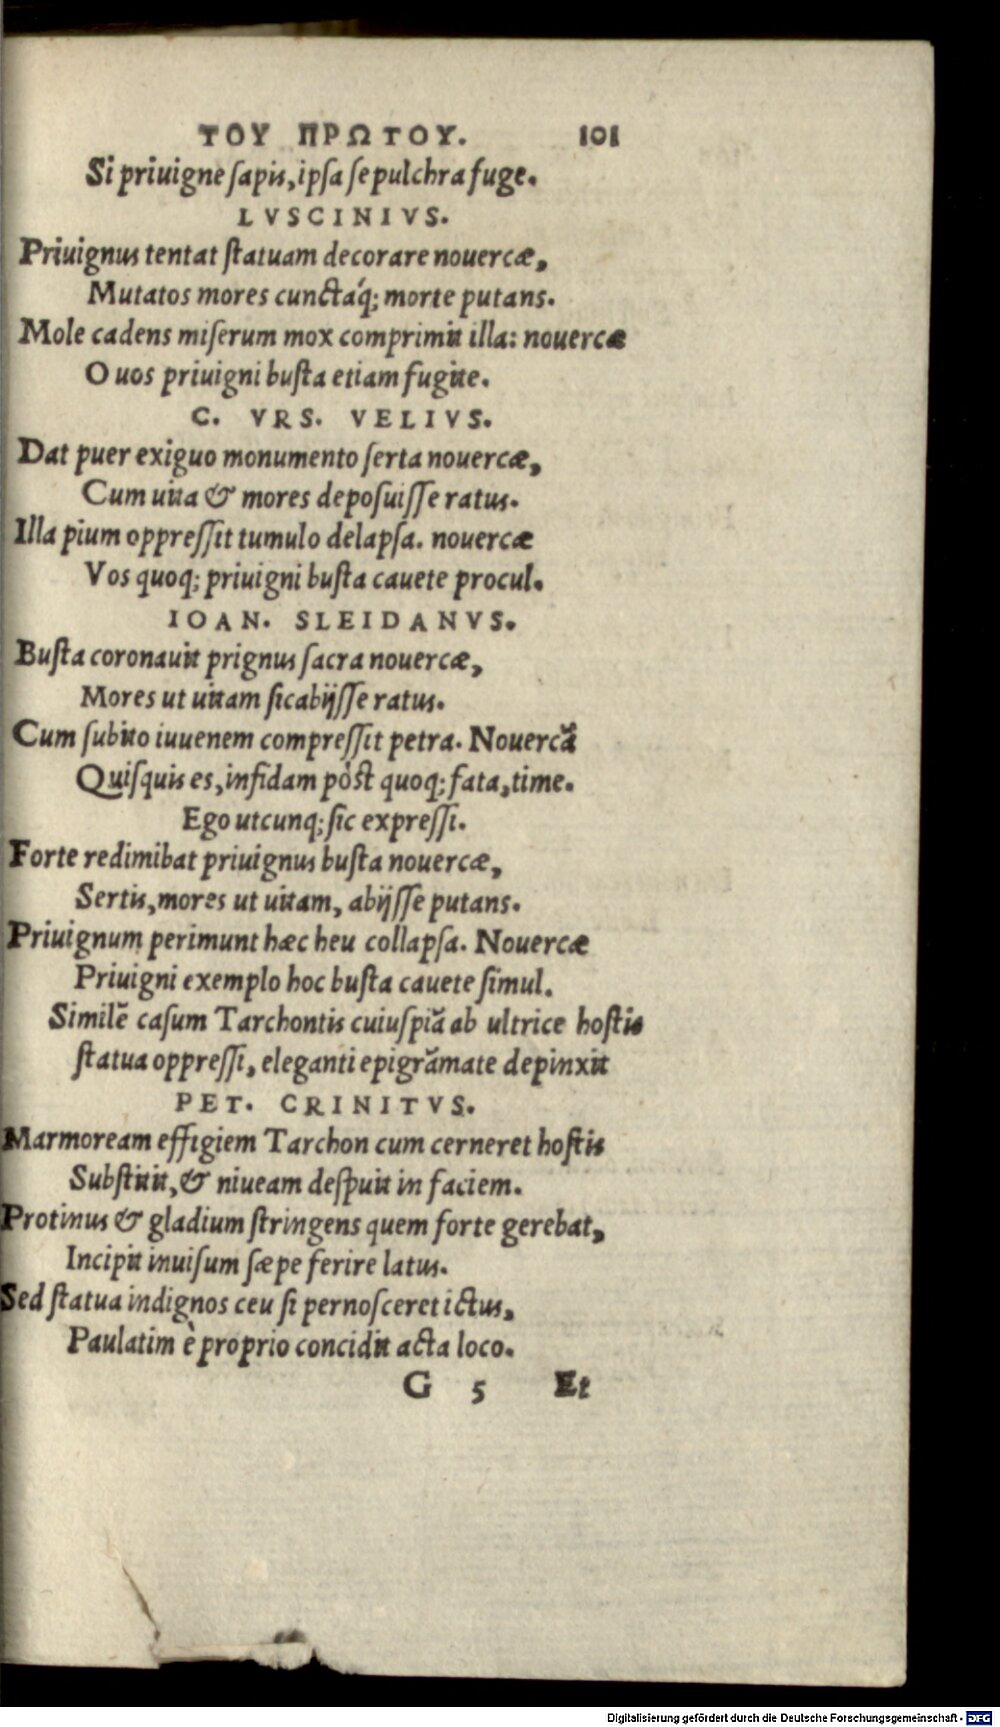 ΤΟΥ ΠΡΩΤΟΥ. 101
Si priuigne sapis, ipsa sepulchra fuge.
LVSCINIVS.
Priuignus tentat statuam decorare nouercæ,
Mutatos mores cunctáq; morte putans.
Mole cadens miserum mox comprimit illa: nouercæ
O uos priuigni busta etiam fugite.
C. VRS. VELIVS.
Dat puer exiguo monumento serta nouercæ,
Cum uita & mores deposuisse ratus.
Illa pium oppressit tumulo delapsa. nouercæ
Vos quoq; priuigni busta cauete procul.
IOAN. SLEIDANVS.
Busta coronauit prignus sacra nouercæ,
Mores ut uitam sic abijsse ratus.
Cum subito iuuenem compressit petra. Nouercã
Quisquis es, infidam pòst quoq; fata, time.
Ego utcunq; sic expressi.
Forte redimibat priuignus busta nouercæ,
Sertis, mores ut uitam, abijsse putans.
Priuignum perimunt hæc heu collapsa. Nouercæ
Priuigni exemplo hoc busta cauete simul.
Similẽ casum Tarchontis cuiuspiã ab ultrice hostis
statua oppressi, eleganti epigrãmate depinxit
PET. CRINITVS.
Marmoream effigiem Tarchon cum cerneret hostis
Substitit, & niueam despuit in faciem.
Protinus & gladium stringens quem forte gerebat,
Incipit inuisum sæpe ferire latus.
Sed statua indignos ceu si pernosceret ictus,
Paulatim è proprio concidit acta loco.
G 5 Et
Digitalisierung gefördert durch die Deutsche Forschungsgemeinschaft - DFG